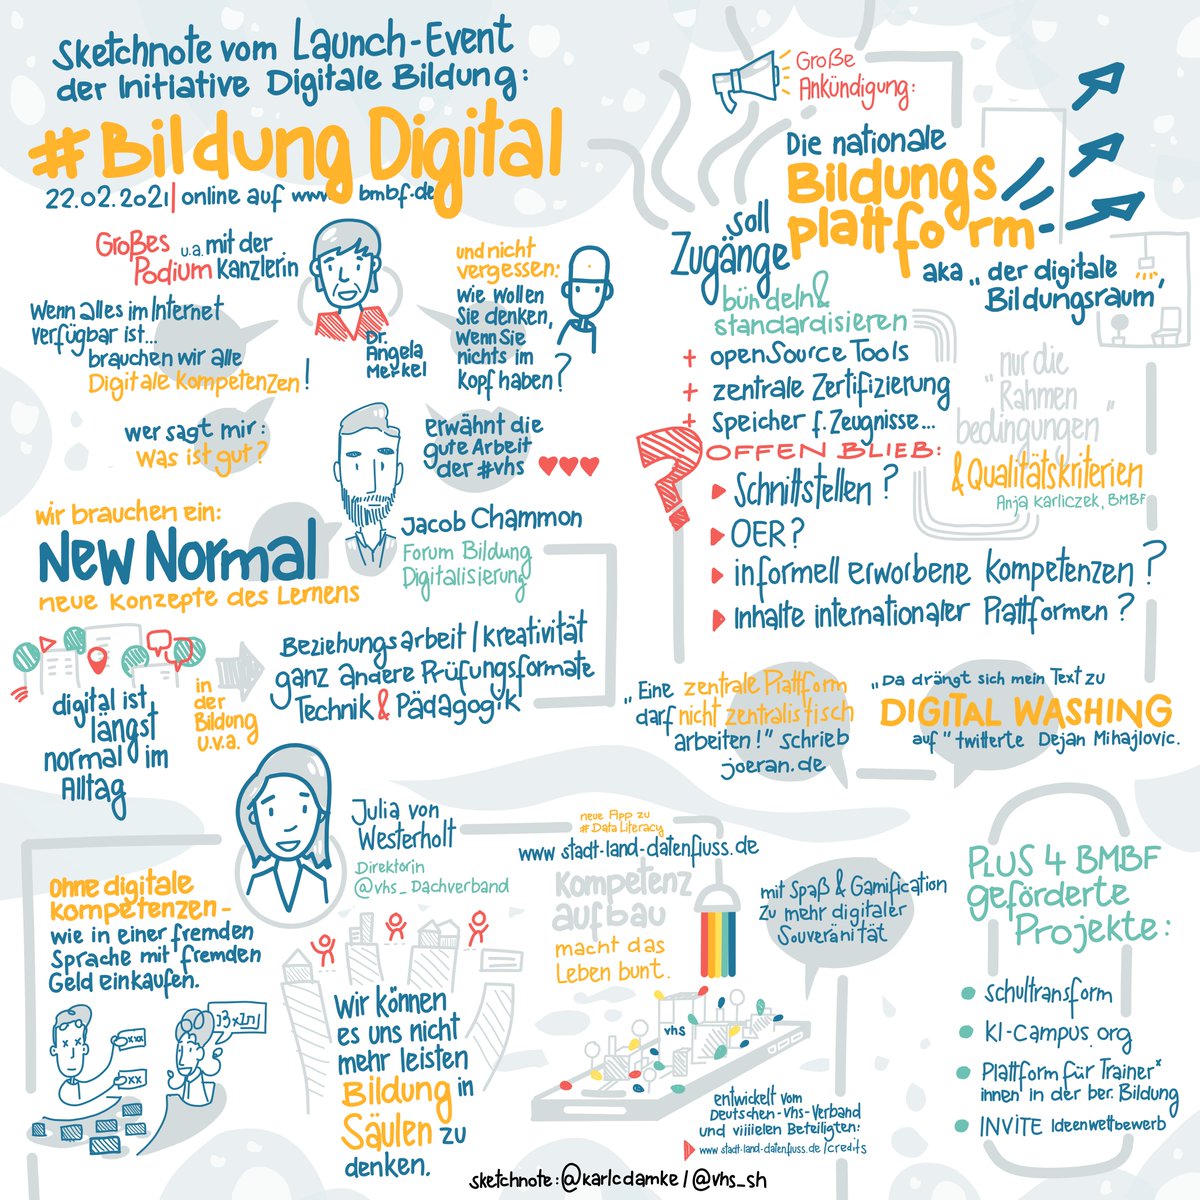 Sketchnote vom Launch-Event
der Initiative Digitale Bildung:
#BildungDigital
22.02.2021 | online auf www. bmbf.de
Großes u.a. mit der
Podium Kanzlerin
Wenn alles im Internet
verfügbar ist...
brauchen wir alle
Digitale Kompetenzen!
Dr. Angela
Merkel
und nicht
vergessen:
Wie wollen
Sie denken,
wenn Sie
nichts im
Kopf haben?
wer sagt mir:
was ist gut?
erwähnt die
gute Arbeit
der #vhs
wir brauchen ein:
New Normal
neue Konzepte des Lernens
Jacob Chammon
Forum Bildung
Digitalisierung
digital ist
längst
normal im
Alltag
in
der
Bildung
u.v.a.
Beziehungsarbeit / Kreativität
ganz andere Prüfungsformate
Technik & Pädagogik
Große
Ankündigung:
Die nationale
Bildungs
plattform
soll
Zugänge
aka "der digitale
Bildungsraum"
bündeln &
standardisieren
+ openSource Tools
+ zentrale Zertifizierung
+ Speicher f. Zeugnisse...
"nur die
Rahmen
bedingungen"
& Qualitätskriterien
Anja Karliczek, BMBF
?
OFFEN BLIEB:
Schnittstellen?
OER?
informell erworbene Kompetenzen?
Inhalte internationaler Plattformen?
"Eine zentrale Plattform
darf nicht zentralistisch
arbeiten!" schrieb
joeran.de
"Da drängt sich mein Text zu
DIGITAL WASHING
auf" twitterte Dejan Mihajlovic.
Julia von
Westerholt
Direktorin
@vhs_Dachverband
Ohne digitale
Kompetenzen-
wie in einer fremden
Sprache mit fremden
Geld einkaufen.
xxx
xx
Wir können
es uns nicht
mehr leisten
Bildung in
Säulen zu
denken.
neue App zu
#DataLiteracy
www.stadt-land-datenfluss.de
Kompetenz
aufbau
macht das
Leben bunt.
mit Spaß & Gamification
zu mehr digitaler
Souveränität
vhs
entwickelt vom
Deutschen-Vhs-Verband
und viiiielen Beteiligten:
www.stadt-land-datenfluss.de/credits
PLUS 4 BMBF
geförderte
Projekte:
Schultransform
KI-Campus.org
Plattform für Trainer*
innen in der ber. Bildung
INVITE Ideenwettbewerb
sketchnote: @karlcdamke / @vhs_sh